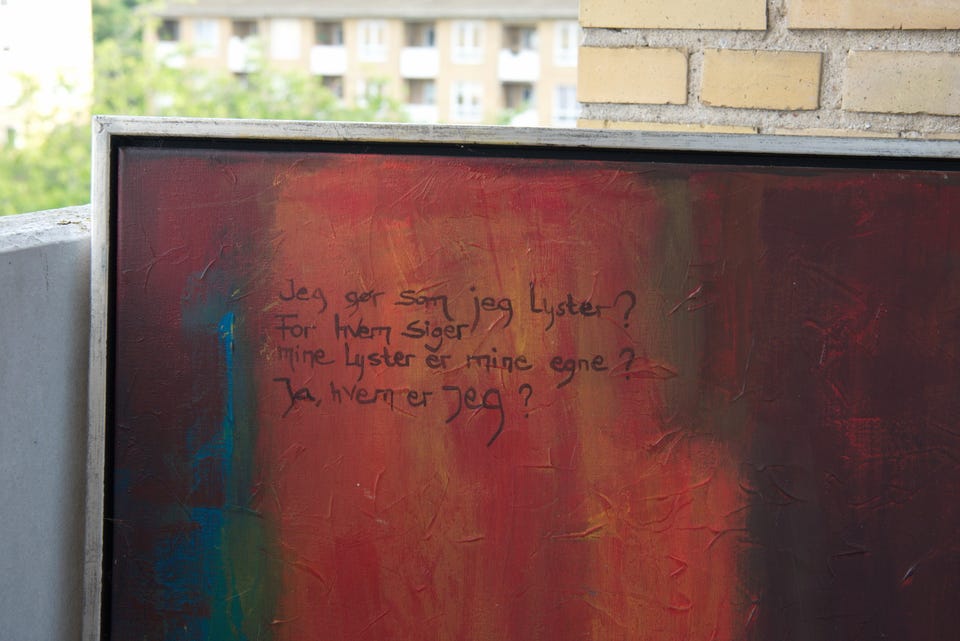 Jeg gør som jeg lyster?
For hvem siger
mine lyster er mine egne?
Ja, hvem er jeg?